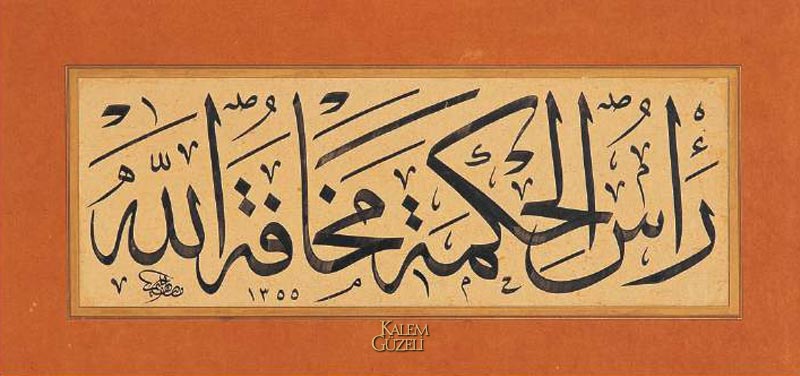 رَأْسُ الْحِكْمَةِ مَخَافَةُ اللّٰهِ
١٣٥٥
KALEM
GÜZELİ